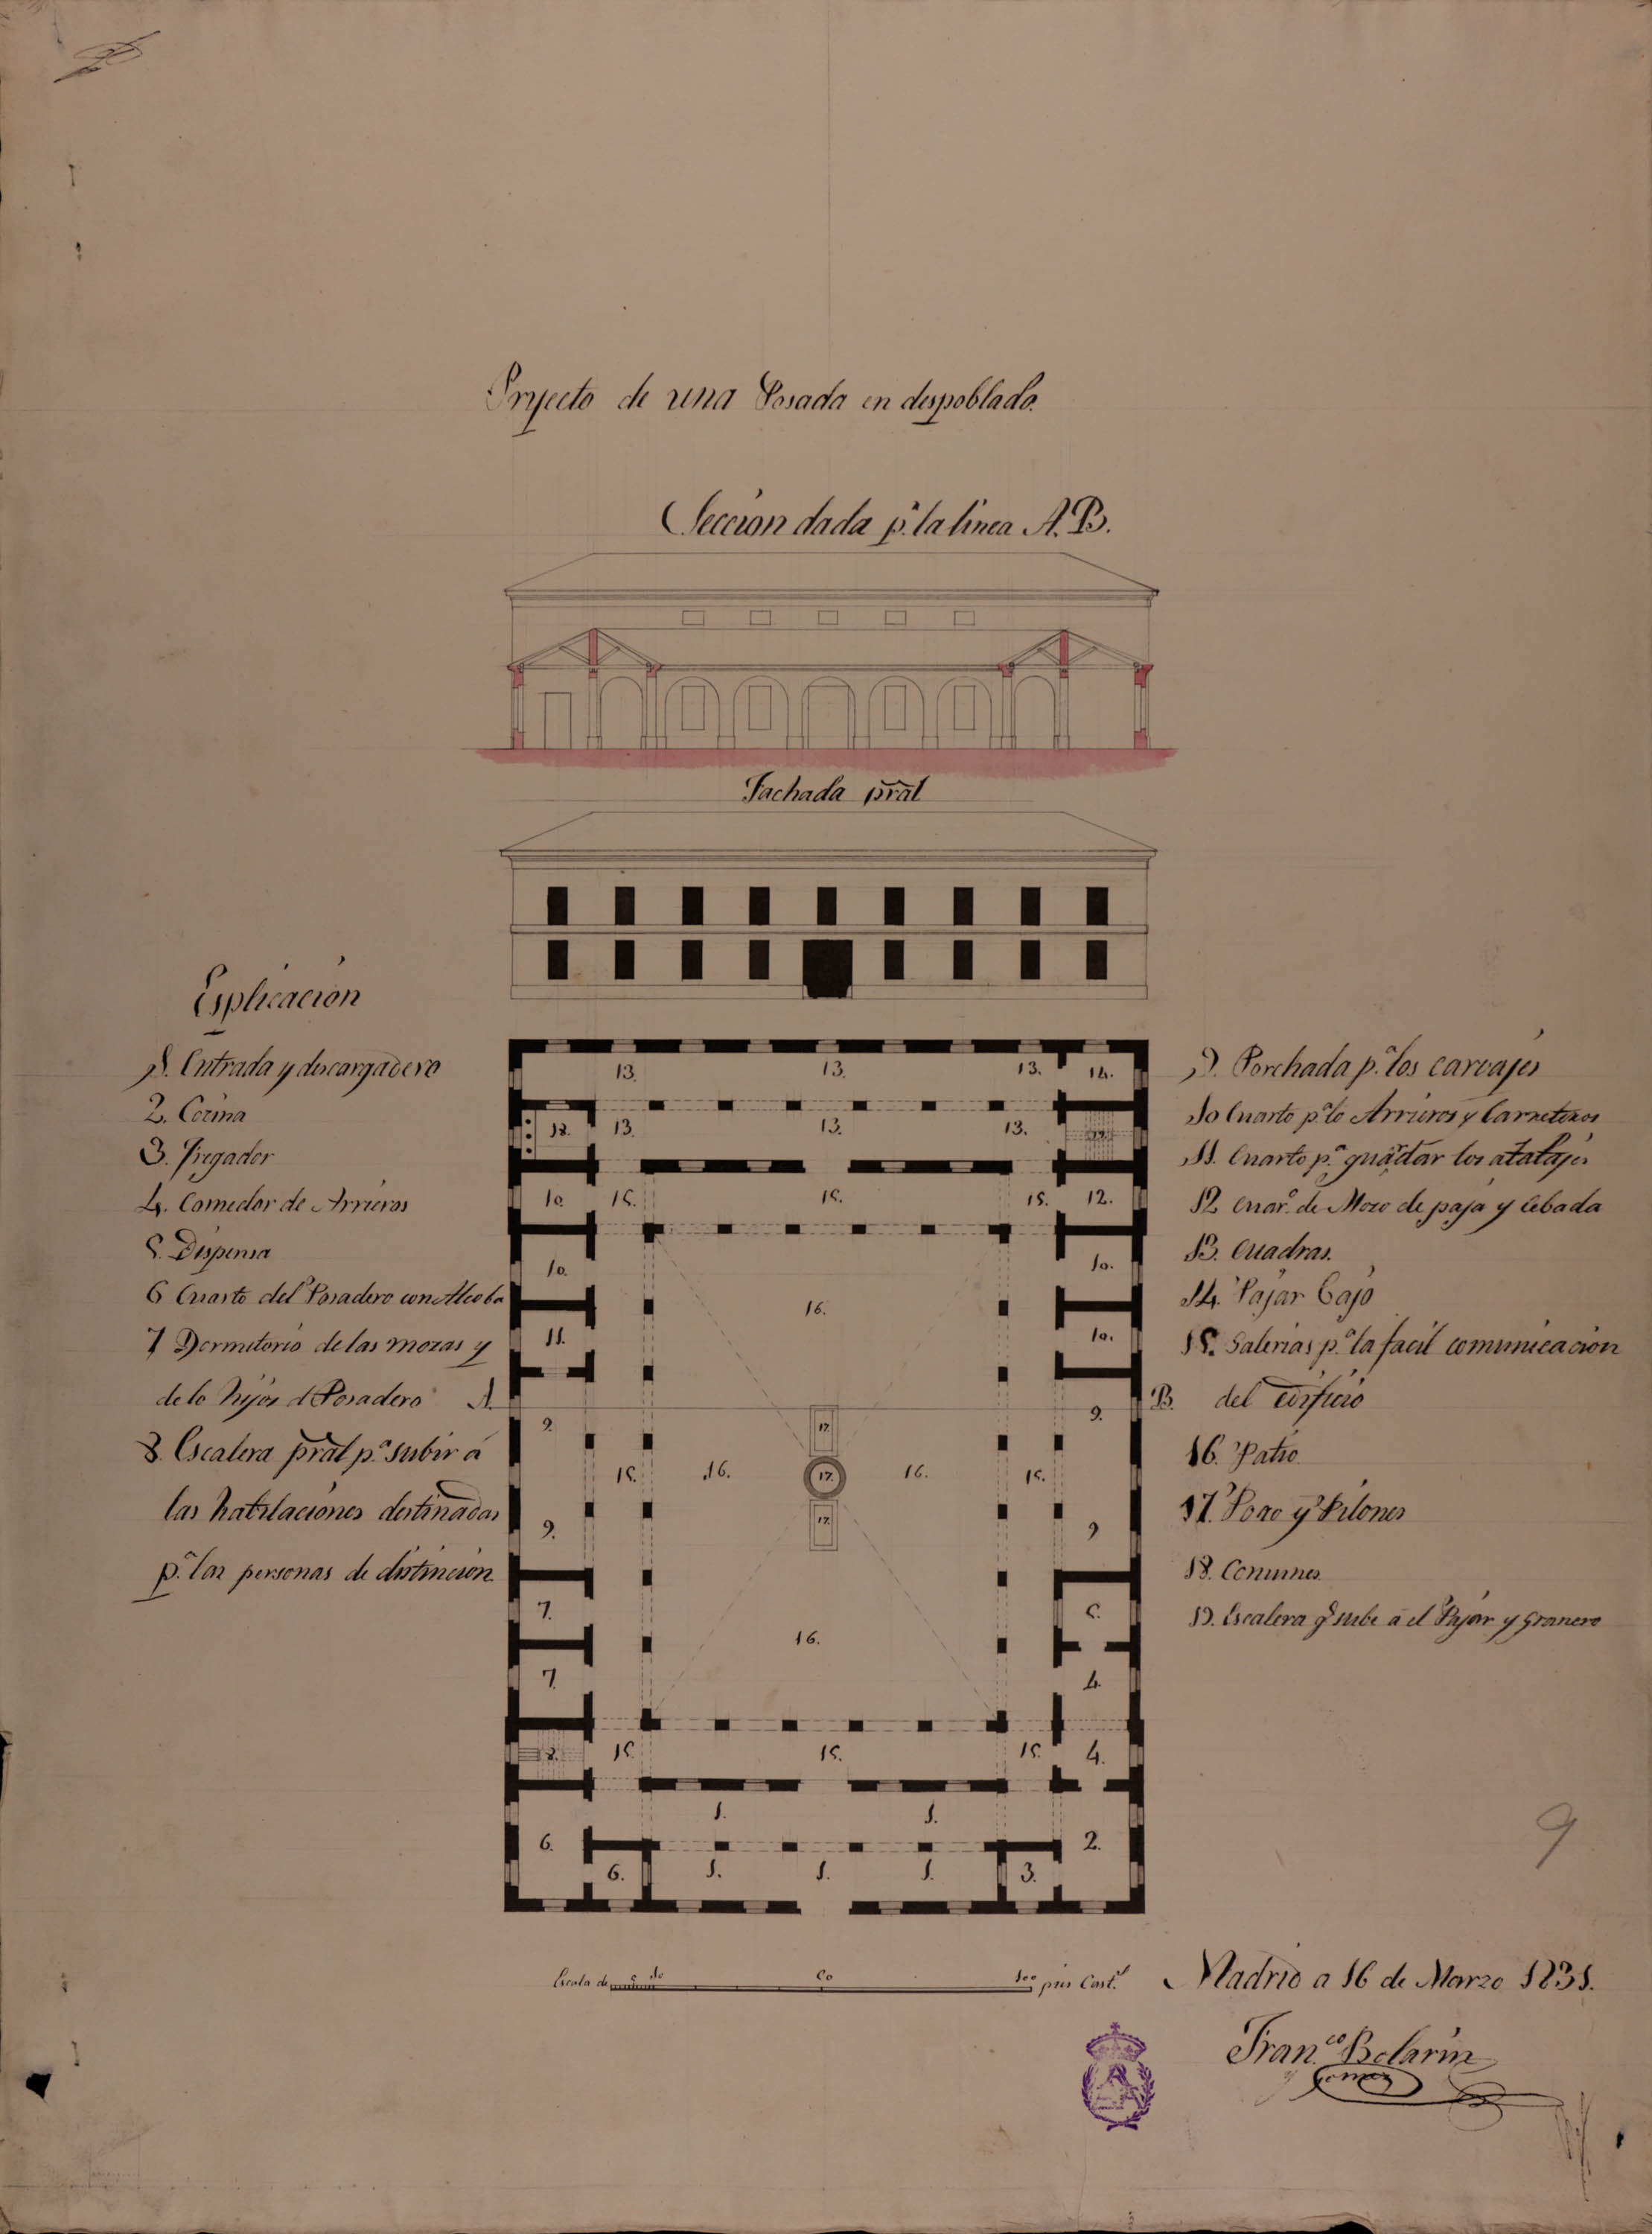 Pryecto de una Posada en despoblado.
Seccion dada p.r la linea A.B.
Fachada pral
Esplicacion
1. Entrada y descargadero
2. Cocina
3. Fregador
4. Comedor de Arrieros
5. Dispensa
6 Cuarto del Posadero con Alcoba
7 Dormitorio de las mozas y
de lo hijos d Posadero
8. Escalera pral p.a subir á
las habitaciones destinadas
p.a las personas de distincion
9. Porchada p.a los carvajes
10 Cuarto p.a lo Arrieros y Carreteros
11. Cuarto p.a guardar los atalajes
12 cuar.o de Mozo de paja y Cebada
13. Cuadras.
14. Pajar bajo
15. Galerias p.a la facil comunicacion
del edificio
16. Patio
17. Pozo y Pilones
18. Comunes
19. Escalera q.e sube á el Pajar y Granero
13. 13. 13. 14.
18. 13. 13. 13. 19.
10. 15. 15. 15. 12.
10. 10.
16.
11. 10.
A. B.
9. 17. 9.
15. 16. 17. 16. 15.
9. 17. 9
7. 5.
16.
7. 4.
8. 15. 15. 15. 4.
1. 1.
6. 2.
6. 1. 1. 1. 3.
Escala de 5 10 50 100 pies Cast.s
Madrid a 16 de Marzo 1831.
Fran.co Belarin
y Gomez
9